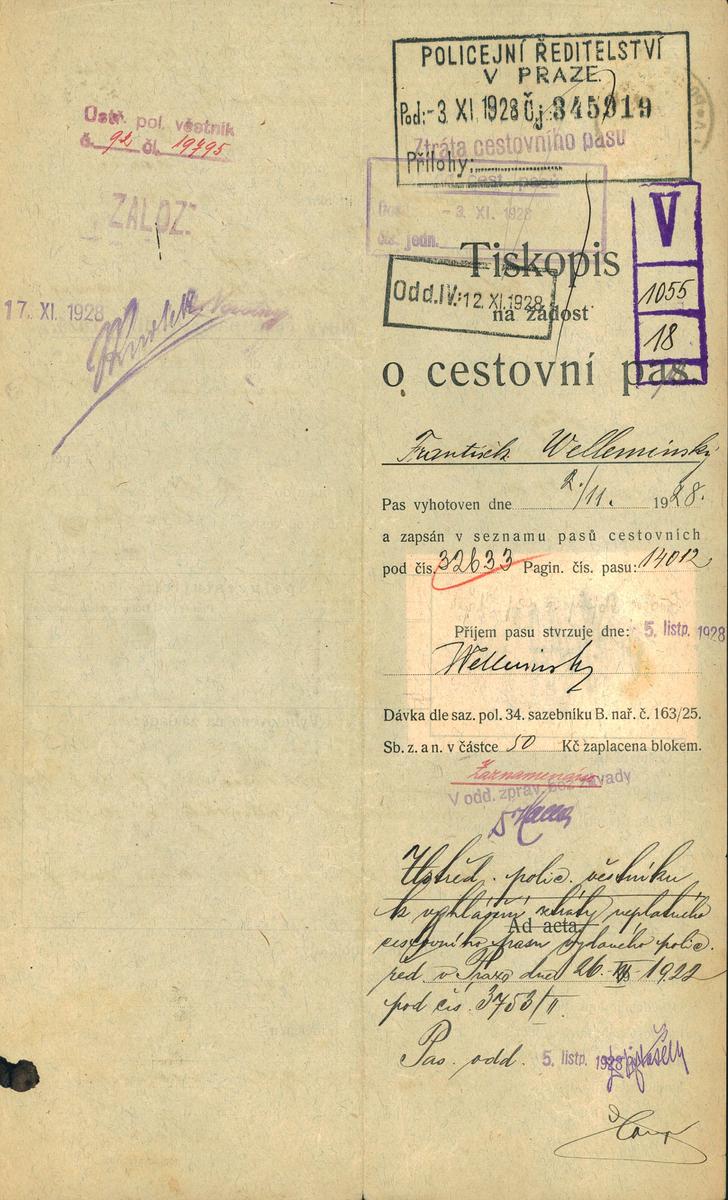 Ústř. pol. věstník
č. 92 čl. 19795
ZALOŽ.
17. XI. 1928
POLICEJNÍ ŘEDITELSTVÍ
V PRAZE
Pod: -3. XI. 1928 Čj. 345919
Ztráta cestovního pasu
Přílohy:
cest. pasů
- 3. XI. 1928
čís. jedn.
V
1055
18
Tiskopis
Odd. IV: 12. XI. 1928
na žádost
o cestovní pas.
František Welleminský
Pas vyhotoven dne 2./11. 1928.
a zapsán v seznamu pasů cestovních
pod čís. 32633 Pagin. čís. pasu: 14012
Příjem pasu stvrzuje dne: 5. listp. 1928
Welleminský
Dávka dle saz. pol. 34. sazebníku B. nař. č. 163/25.
Sb. z. a n. v částce 50 Kč zaplacena blokem.
Zaznamenáno
V odd. zpráv. bez závady
Ústřed. polic. věstníku
k vyhlášení ztráty neplatného
Ad acta
cestovního pasu vydaného polic.
řed. v Praze dne 26. 1922
pod čís. 3753/II.
Pas. odd. 5. listp. 1928